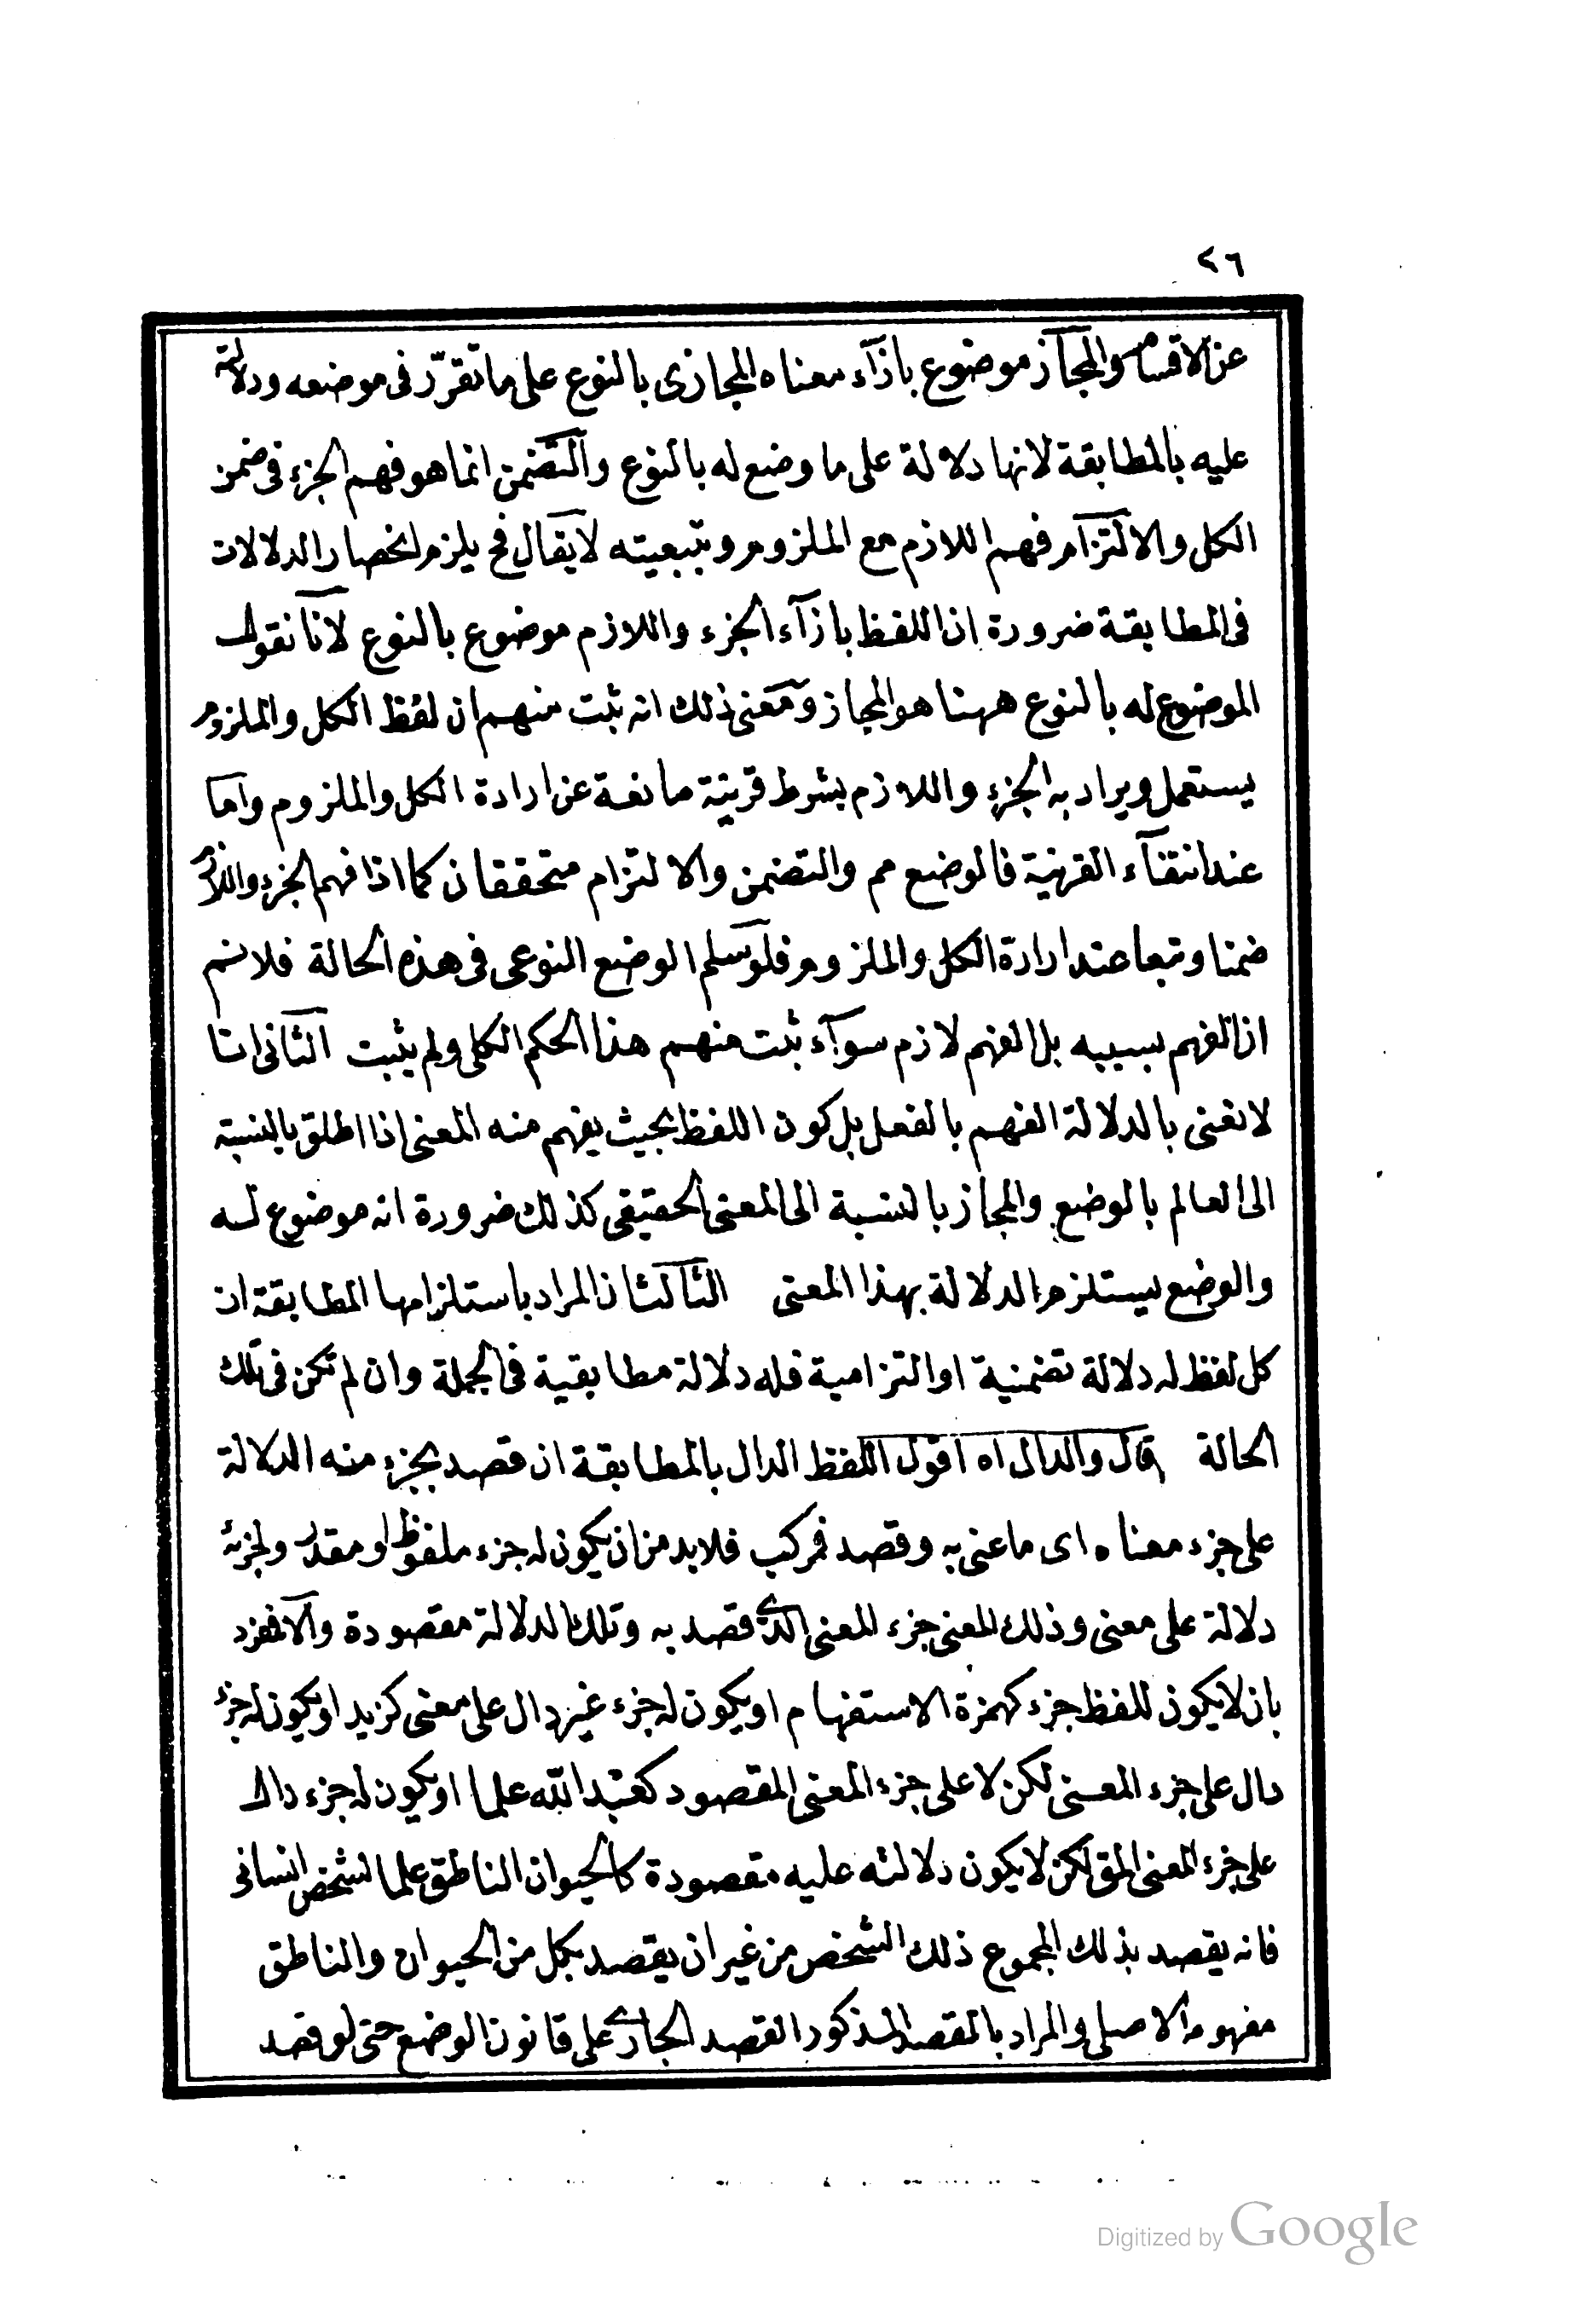 ٢٦
عن الاقسام والمجاز موضوع بازآء معناه المجازى بالنوع على ما تقرّر فى موضعه ودلالته
عليه بالمطابقة لانها دلالة على ما وضع له بالنوع والتضمن انما هو فهم الجزء فى ضمن
الكل والالتزام فهم اللازم مع الملزوم وبتبعيته لا يقال فح يلزم انحصار الدلالات
فى المطابقة ضرورة ان اللفظ بازآء الجزء واللازم موضوع بالنوع لانا نقول
الموضوع له بالنوع ههنا هو المجاز ومعنى ذلك انه ثبت منهم ان لفظ الكل والملزوم
يستعمل ويراد به الجزء واللازم بشرط قرينة مانعة عن ارادة الكل والملزوم واما
عند انتفآء القرينة فالوضع مم والتضمن والالتزام متحققان كما اذا فهم الجزء واللازم
ضمنا وتبعا عند ارادة الكل والملزوم فلو سلم الوضع النوعى فى هذه الحالة فلا نسم
ان الفهم بسببه بل الفهم لازم سوآء ثبت منهم هذا الحكم الكلى ولم يثبت الثانى انا
لا نعنى بالدلالة الفهم بالفعل بل كون اللفظ بحيث يفهم منه المعنى اذا اطلق بالنسبة
الى العالم بالوضع والمجاز بالنسبة الى المعنى الحقيقى كذلك ضرورة انه موضوع له
والوضع يستلزم الدلالة بهذا المعنى الثالث ان المراد باستلزامها المطابقة ان
كل لفظ له دلالة تضمنية او التزامية فله دلالة مطابقية فى الجملة وان لم تكن فى تلك
الحالة قال والدال اه اقول اللفظ الدال بالمطابقة ان قصد بجزء منه الدلالة
على جزء معناه اى ما عنى به وقصد فمركب فلا بد من ان يكون له جزء ملفوظ او مقدر ولجزئه
دلالة على معنى وذلك المعنى جزء المعنى الذى قصد به وتلك الدلالة مقصودة والا فمفرد
بان لا يكون للفظ جزء كهمزة الاستفهام او يكون له جزء غير دال على معنى كزيد او يكون له جزء
دال على جزء المعنى لكن لا على جزء المعنى المقصود كعبد الله علما او يكون له جزء دال
على جزء المعنى المق لكن لا يكون دلالته عليه مقصودة كالحيوان الناطق علما لشخص انسانى
فانه يقصد بذلك المجموع ذلك الشخص من غير ان يقصد بكل من الحيوان والناطق
مفهومه الاصلى والمراد بالمقصد المذكور القصد الجارى على قانون الوضع حتى لو قصد
Digitized by Google